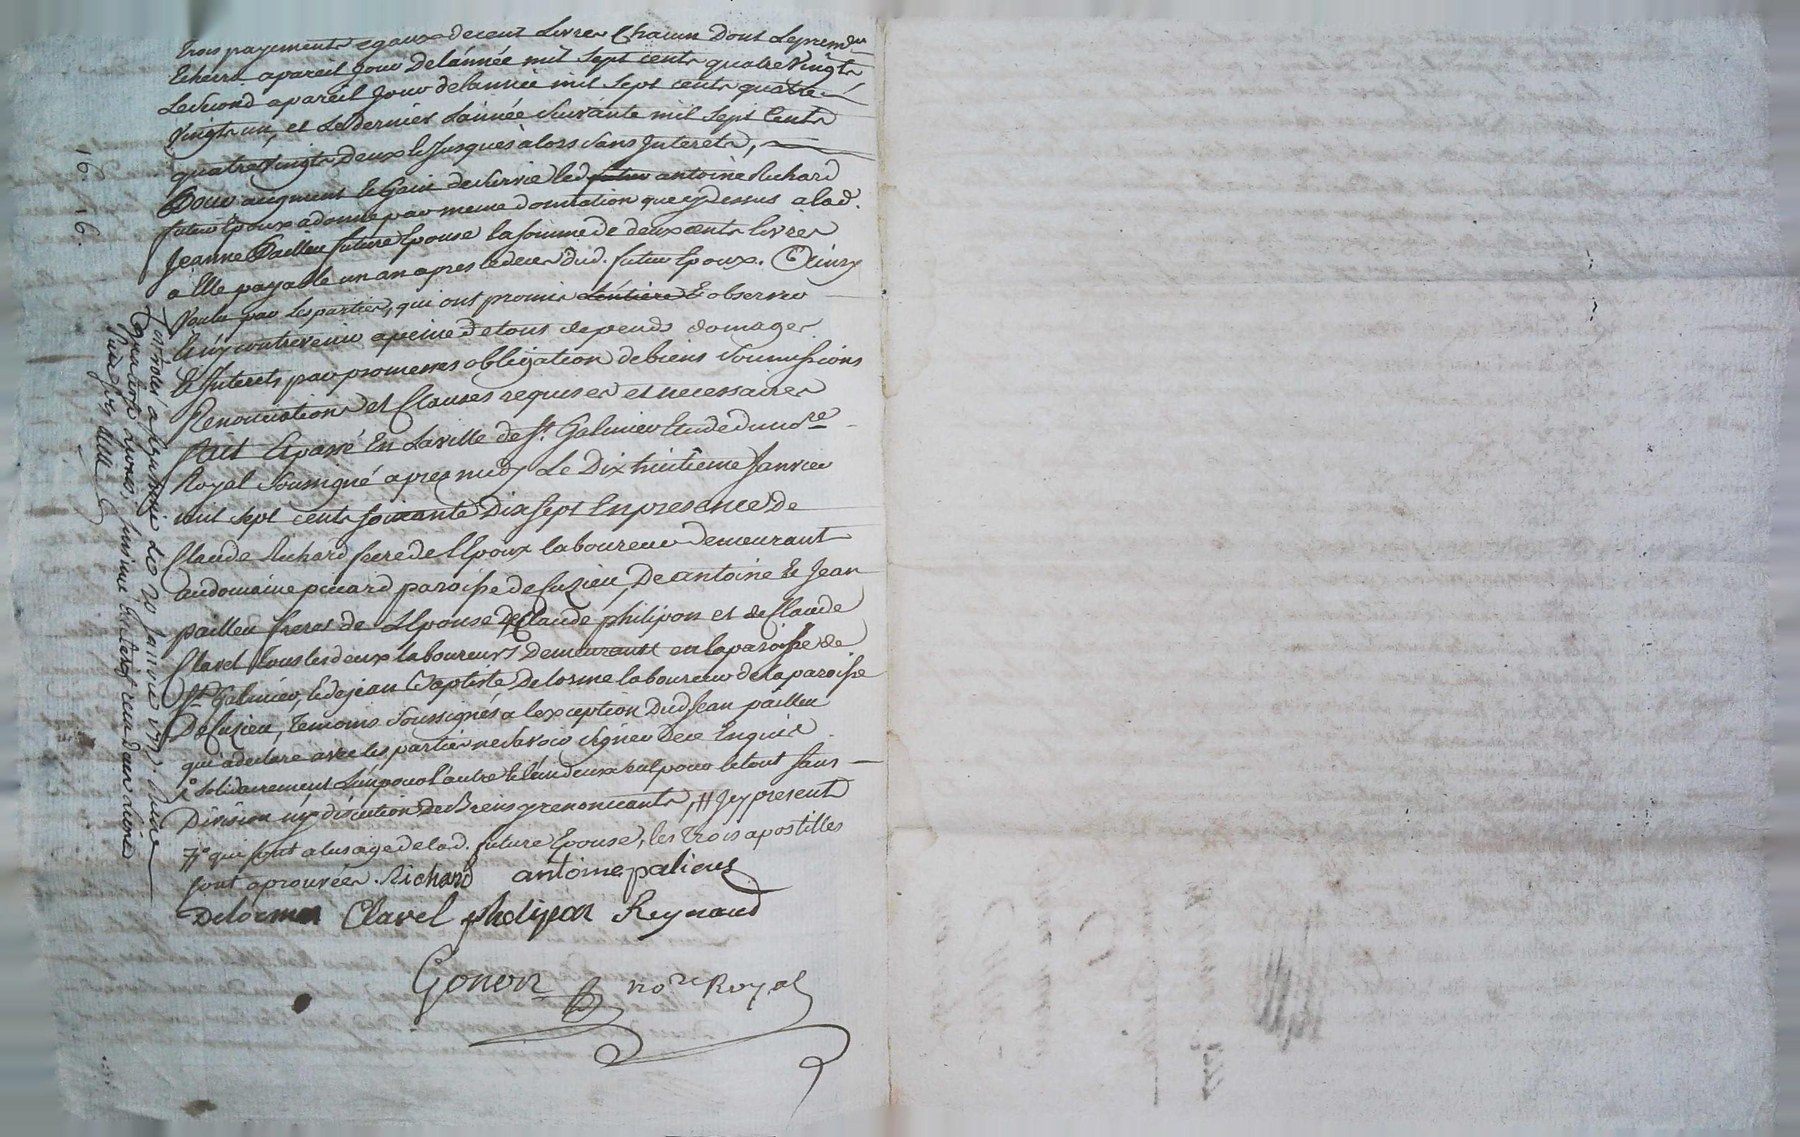 trois payements egaux de cent Livres Chacun Dont Le premier
Echeira a pareil Jour De l'année mil Sept cents quatre Vingts
Le Second a pareil Jour de l'année mil Sept cents quatre
Vingts un, et Le Dernier L'année Suivante mil Sept Cents
quatre Vingts Deux Et Jusques à lors Sans Interets,
Pour augment Et Gain de Survie led. futur antoine Richard
futur Epoux a donné par meme donnation que cy Dessus a lad.
Jeanne Pailleu future Epouse la Somme de deux cents Livres
a Elle payable un an apres le deces dud. futur Epoux. Ainsy
Voulu par Les parties, qui ont promis Et observer
Et n'y contrevenir a peine de tous depends domages
Et Interets par promesses obligation de biens Soumissions
Renonciations et Clauses requises et necessaires
Fait Et passé En La Ville de St. Galmier Etude du nore
Royal Soussigné apres midy Le Dix huitieme Janvier
mil Sept cents Soixante Dix Sept En presence de
Claude Richard frere de L'Epoux laboureur Demeurant
au domaine picard paroisse de Cuzieu, De antoine Et Jean
pailleu freres de L'Epouse de Claude philipon et de Claude
Clavel tous les deux laboureurs Demeurants en la paroisse de
St. Galmier, Et de jean Baptiste Delorme laboureur de la paroisse
De Cuzieu, temoins Soussignés a l'exception Dud. Jean pailleu
qui a declaré avec les parties ne Savoir Signer De ce Enquis
Solidairement L'un pour l'autre Et l'un deux Seul pour le tout Sans
Division ny discution De Biens y renoncants, # Icy presents
#° que sont a lusage de lad. future Epouse, les trois apostilles
sont aprouvées. Richard antoine palieu
Delorme Clavel phelipon Reynaud
Gonon nore Royal
16. 16.
Controlé a St. galmier le 20 Janvier 1777. Reçu
quatorze Livres, insinué Et reçu un Livre